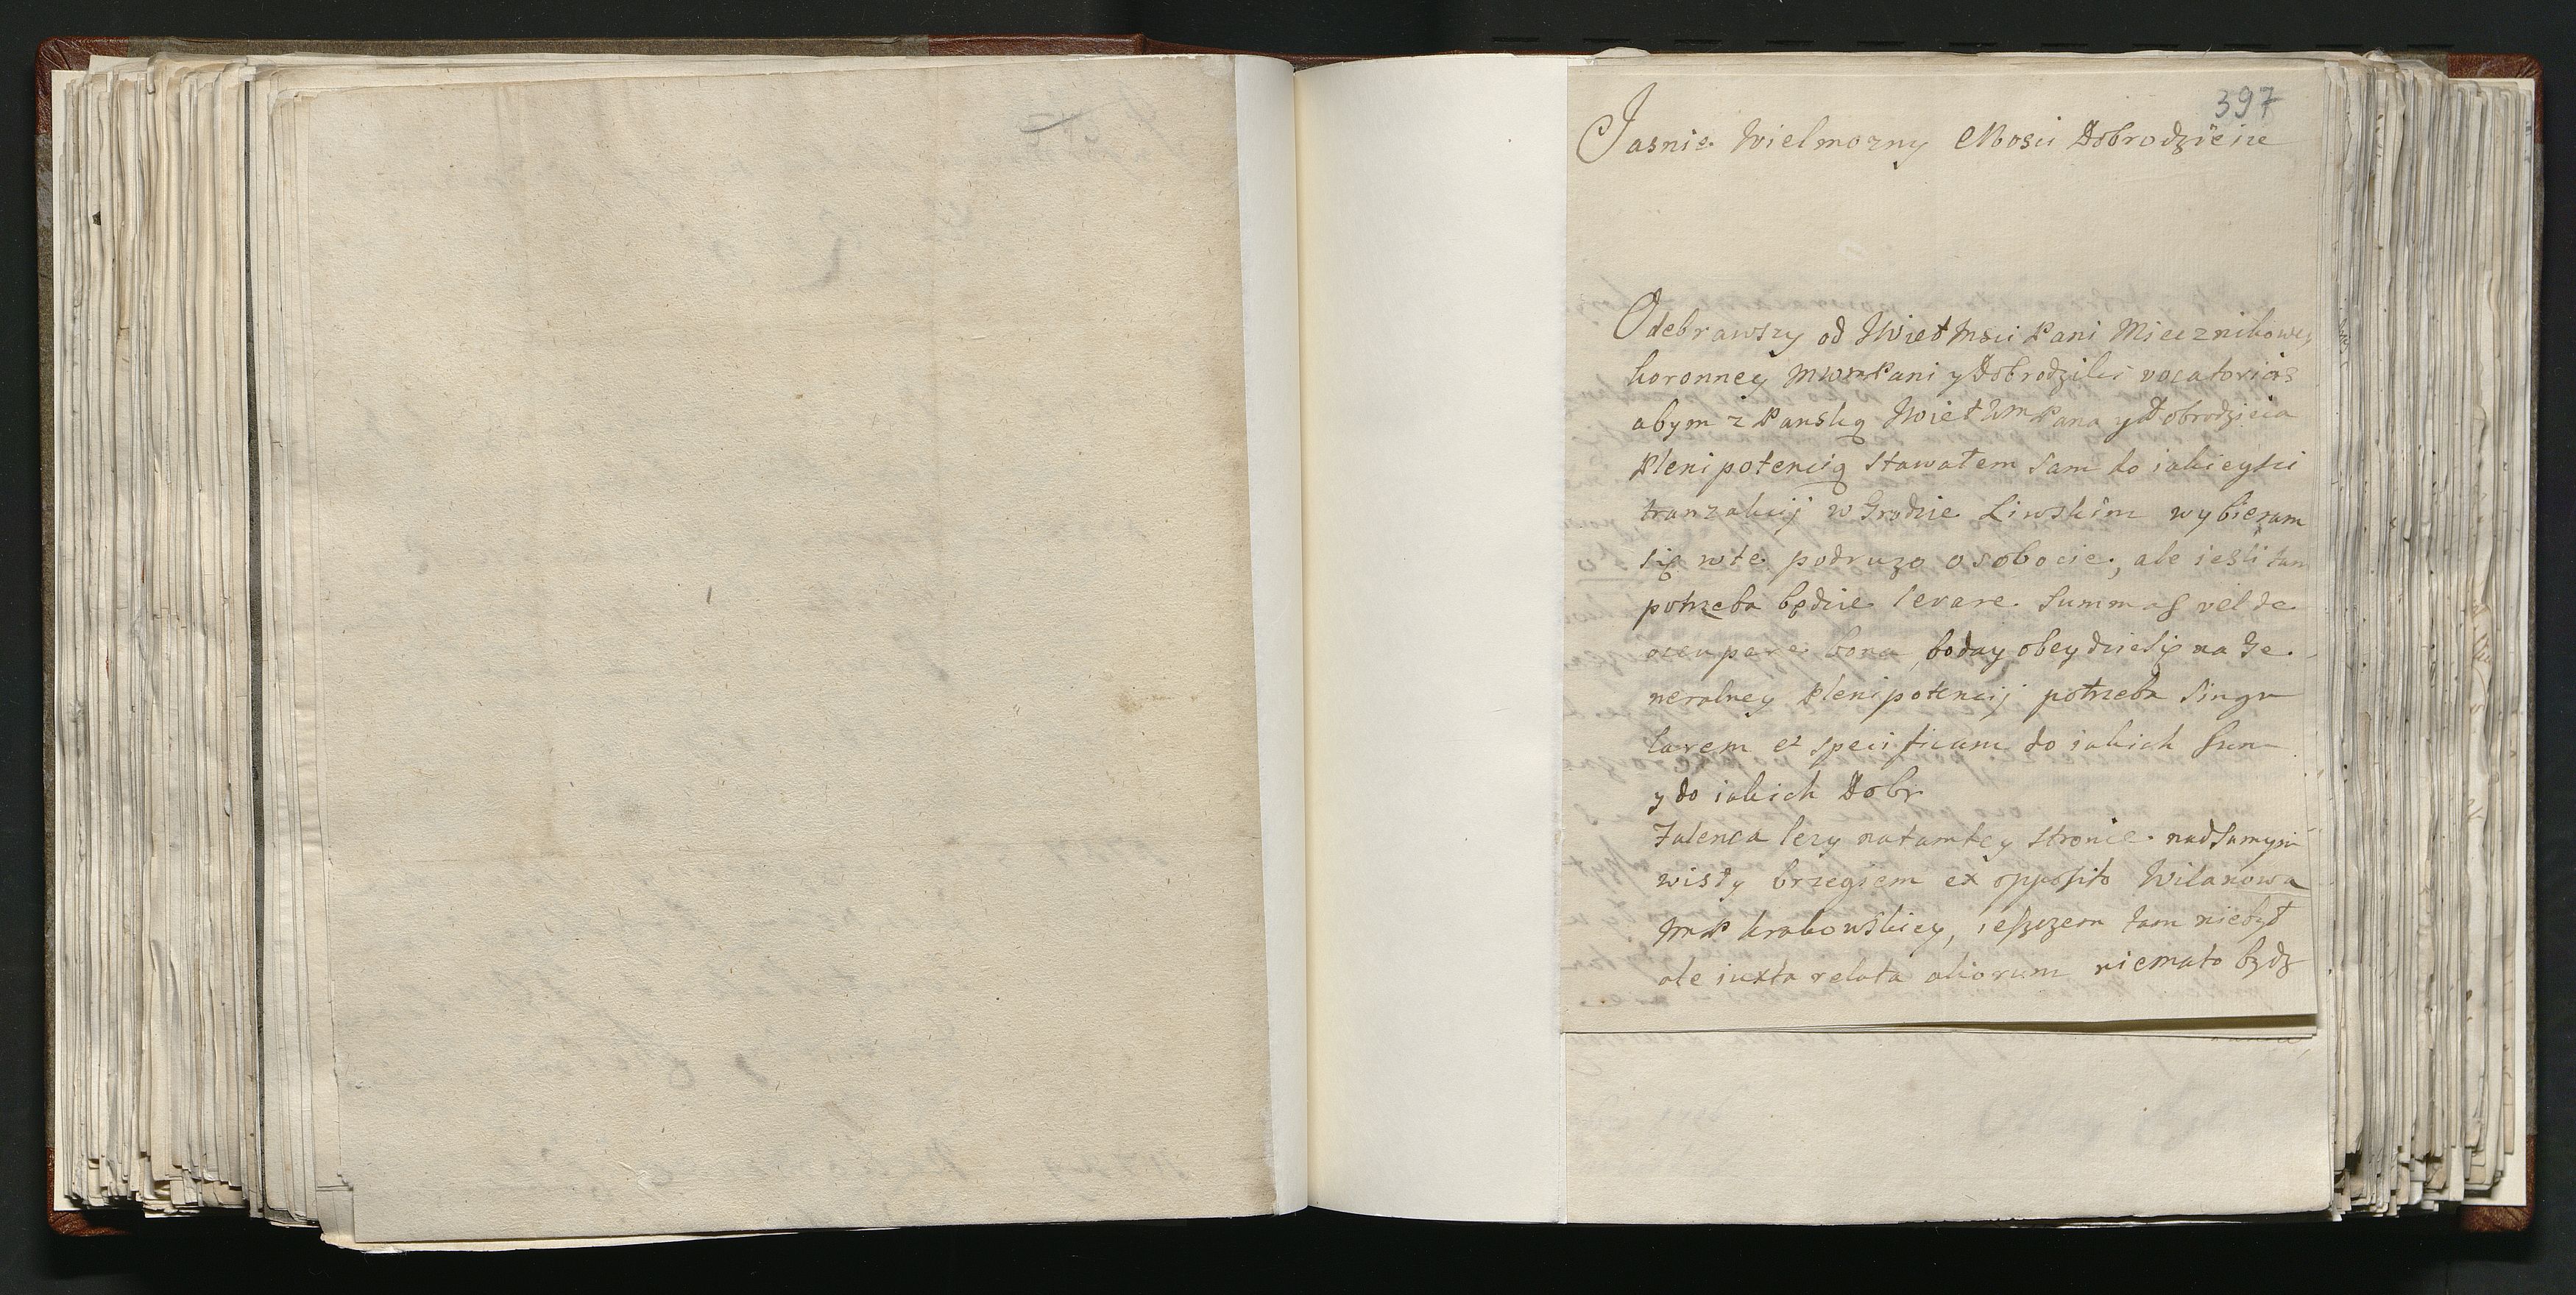 397
Jasnie Wielmozny Mosci Dobrodzieiu
Odebrawszy od JWieł Msci Pani Miecznikowey
koronney MWM Pani y Dobrodziki vocatorias
abym z Panską JWieł WM Pana y Dobrodzieia
Plenipotencią stawałem sam do iakieysci
tranzakcij w Grodzie Liwskim wybieram
się w te podruzo o sobocie, ale iesli tam
potrzeba będzie levare summas vel de
occupare bona, boday obeydzie się na Ge
neralney Plenipotencij potrzeba singu
larem et specificam do iakich sum
y do iakich Dobr
Zalenca lezy na tamtey stronie nad samym
wisły brzegiem ex opposito Wilanowa
JMP krakowskiey, ieszczem tam niebył
ale iuxta relata aliorum niemało będz